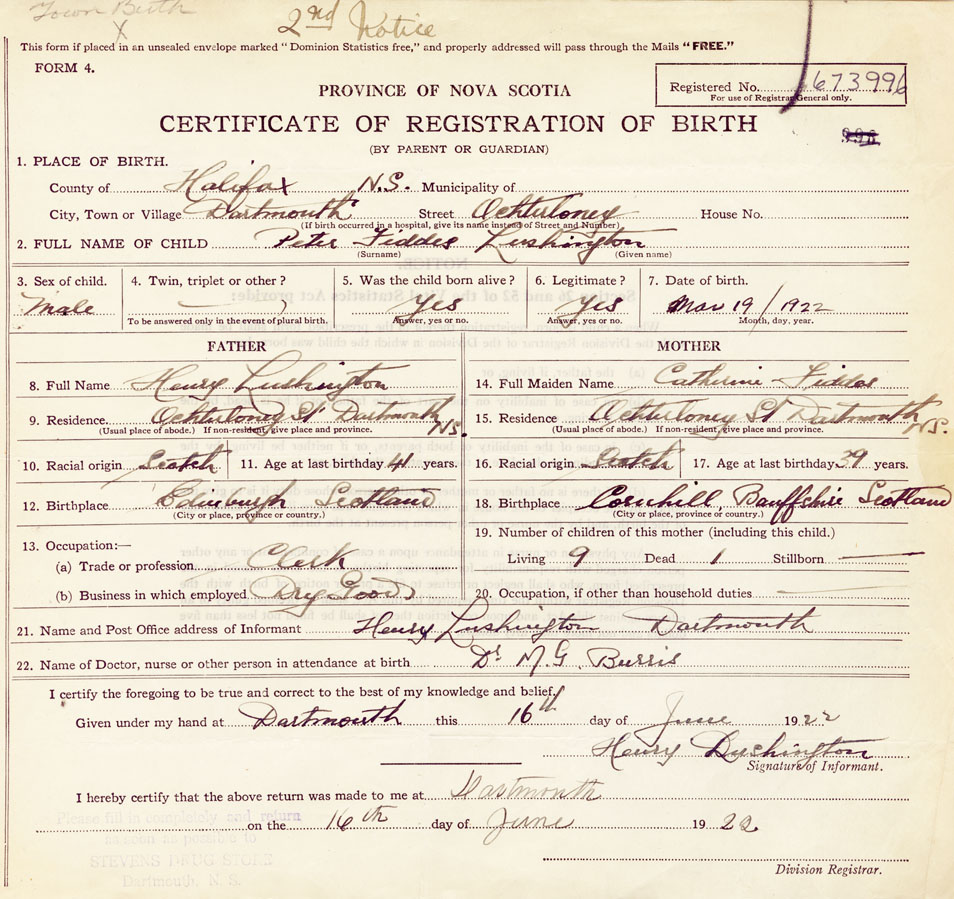 Town Birth
X
2nd Notice
This form if placed in an unsealed envelope marked "Dominion Statistics free," and properly addressed will pass through the Mails "FREE."
FORM 4.
Registered No. 673996
For use of Registrar General only.
PROVINCE OF NOVA SCOTIA
CERTIFICATE OF REGISTRATION OF BIRTH
(BY PARENT OR GUARDIAN)
1. PLACE OF BIRTH.
County of Halifax N.S. Municipality of
City, Town or Village Dartmouth Street Ochterloney House No.
(If birth occurred in a hospital, give its name instead of Street and Number)
2. FULL NAME OF CHILD Peter Fiddes Lushington
(Surname) (Given name)
3. Sex of child. 4. Twin, triplet or other? 5. Was the child born alive? 6. Legitimate? 7. Date of birth.
Male Yes Yes Mar 19/1922
To be answered only in the event of plural birth. Answer, yes or no. Answer, yes or no. Month, day, year.
FATHER MOTHER
8. Full Name Henry Lushington 14. Full Maiden Name Catherine Fiddes
9. Residence. Ochterloney St Dartmouth N.S. 15. Residence Ochterloney St Dartmouth N.S.
(Usual place of abode.) If non-resident, give place and province. (Usual place of abode.) If non-resident, give place and province.
10. Racial origin Scotch 11. Age at last birthday 41 years. 16. Racial origin Scotch 17. Age at last birthday 39 years.
12. Birthplace Edinburgh Scotland 18. Birthplace Cornhill, Banffshire Scotland
(City or place, province or country.) (City or place, province or country.)
13. Occupation:— 19. Number of children of this mother (including this child.)
(a) Trade or profession Clerk Living 9 Dead 1 Stillborn
(b) Business in which employed Dry Goods 20. Occupation, if other than household duties
21. Name and Post Office address of Informant Henry Lushington Dartmouth
22. Name of Doctor, nurse or other person in attendance at birth Dr M.G. Burris
I certify the foregoing to be true and correct to the best of my knowledge and belief.
Given under my hand at Dartmouth this 16th day of June 1922
Henry Lushington
Signature of Informant.
I hereby certify that the above return was made to me at Dartmouth
on the 16th day of June 1922
Please fill in completely and return
as soon as possible to
STEVENS DRUG STORE
Dartmouth, N. S.
Division Registrar.